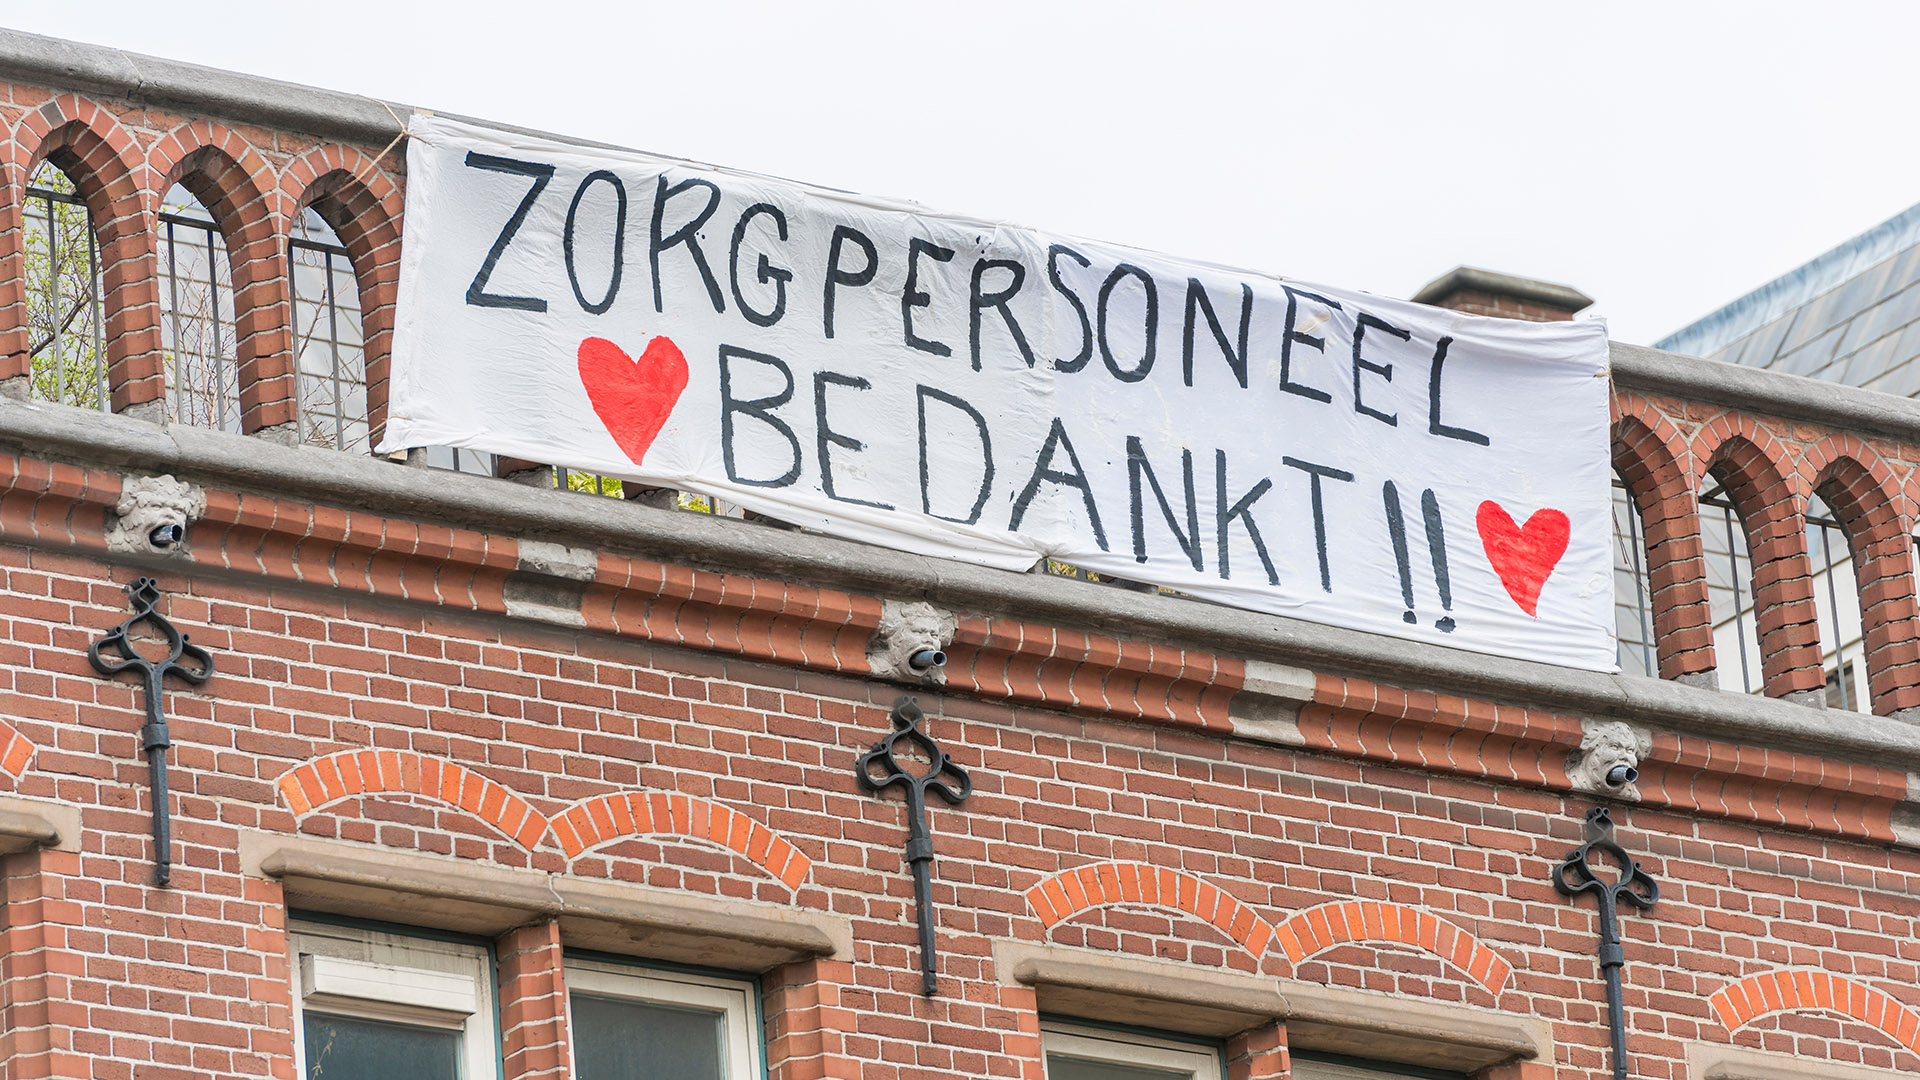 ZORGPERSONEEL
BEDANKT!!